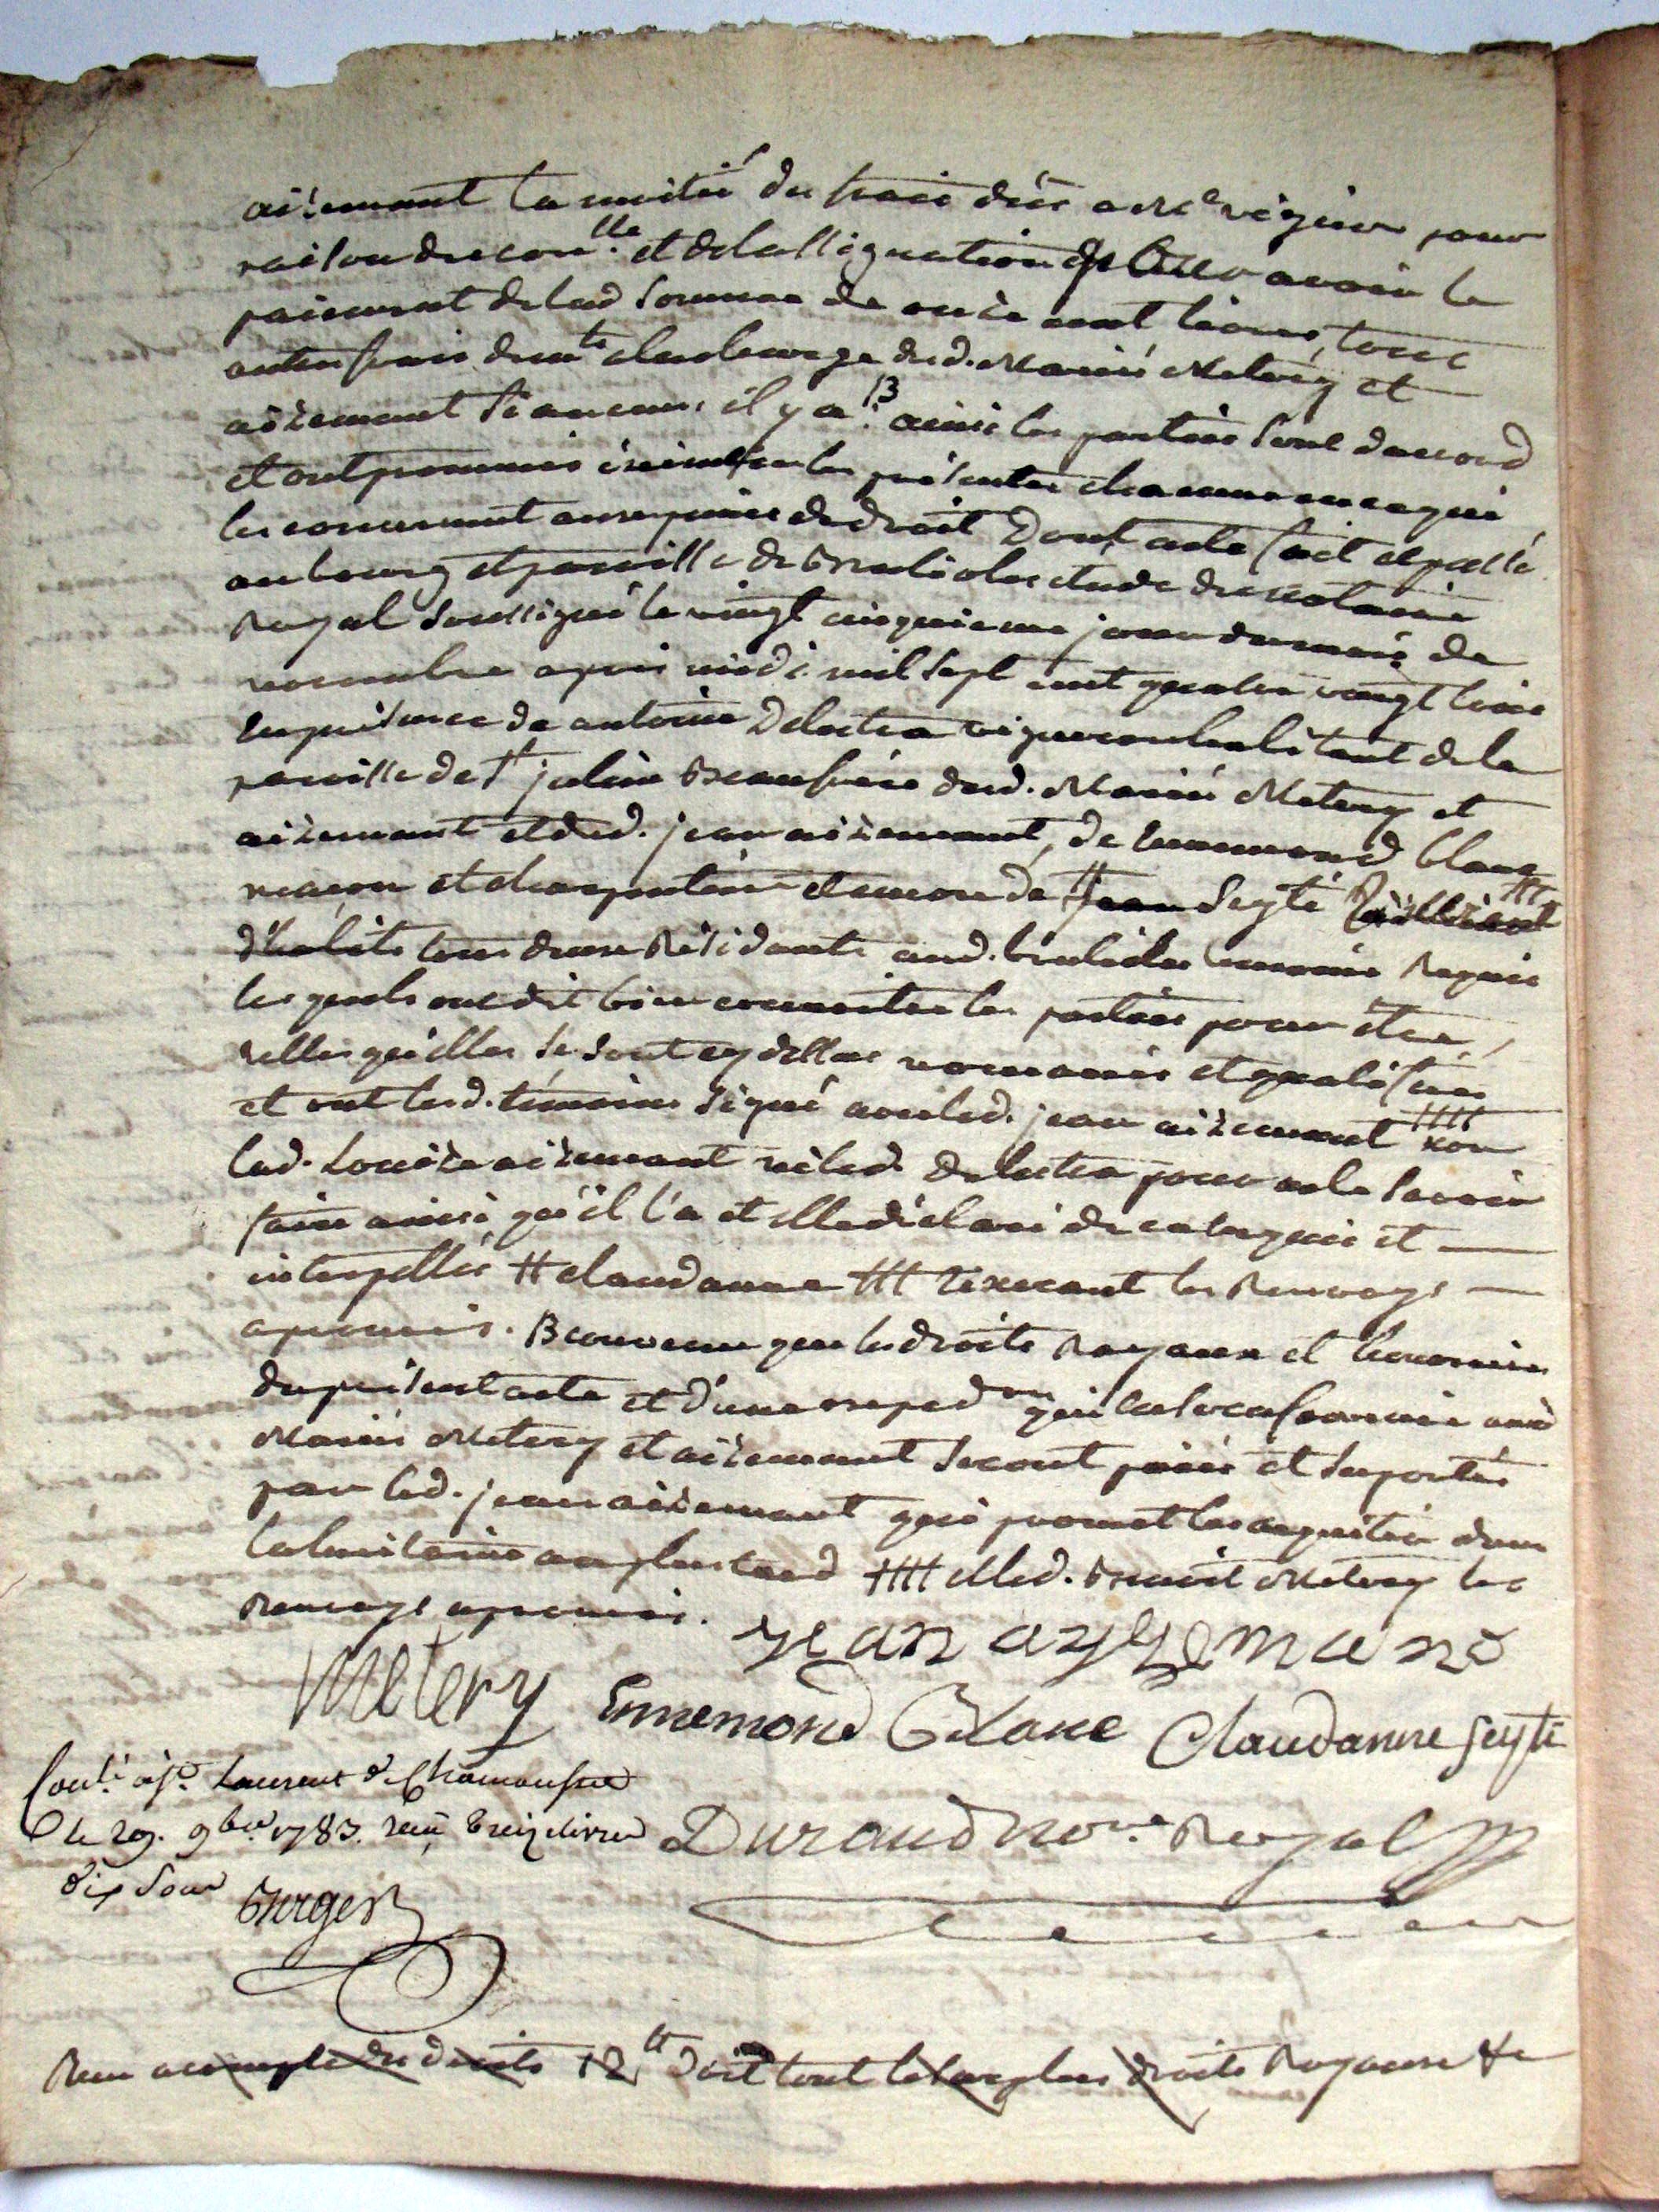 aizemant la moitié des frais dûs a Me vigier pour
raison du con.lle et de lassignation pour avoir le
paiement de lad somme de onze cent livres, tous
autres frais du mts a la charge dud. Marié Metery et
aizemant si aucuns il y a B. ainsi les parties sont daccord
et ont promis éxécuter les présentes chacune en ce qui
les concernent aux peines de droit Dont acte fait et passé
au bourg et paroisse de Brulioles etude du notaire
Royal soussigné le vingt cinquieme jour du mois de
novembre apres midi mil sept cent quatre vingt trois
En présence de antoine Delectra vigneron habitant de la
paroisse de St julien Beaufrère dud. Marié Metery et
aizemant et dud. jean aizemant, de Ennemond blanc
maçon et charpentier et encore de # Jean Seyte ###
d'habits tous deux Résidants aud. brulioles temoins Requis
les quels ont dit bien connoitre les parties pour être
telles quelles se sont cy dessus nommées et qualifiées
et ont lesd. témoins signé avec led. jean aizemant #### non
lad. Louise aizemant ni led. Delectra pour ne le savoir
faire ainsi qu'il l'a et elle déclaré de ce enquis et
interpellés # claudanne ### tixerant les Renvoys
aprouvés. B convenu que les droits Royaux et honoraires
du présent acte et d'une exped on qui en sera fournie aud
Mariés Metery et aizemant seront païés et suportés
par led. jean aizemant qui promet les acquiter dans
la huitaine au plus tard #### et led. Benoit Metery les
Renvoys aprouvés.
jean aysemand
Metery Ennemond Blanc Claudanne seyte
Conlé à St. Laurent d Chamousset
le 29. 9bre 1783. Reçu treize livres
dix sous
Durand nore. Royal
Berger
Reçu acompte des droits 12 lt doit tout le surplus droits Royaux &c